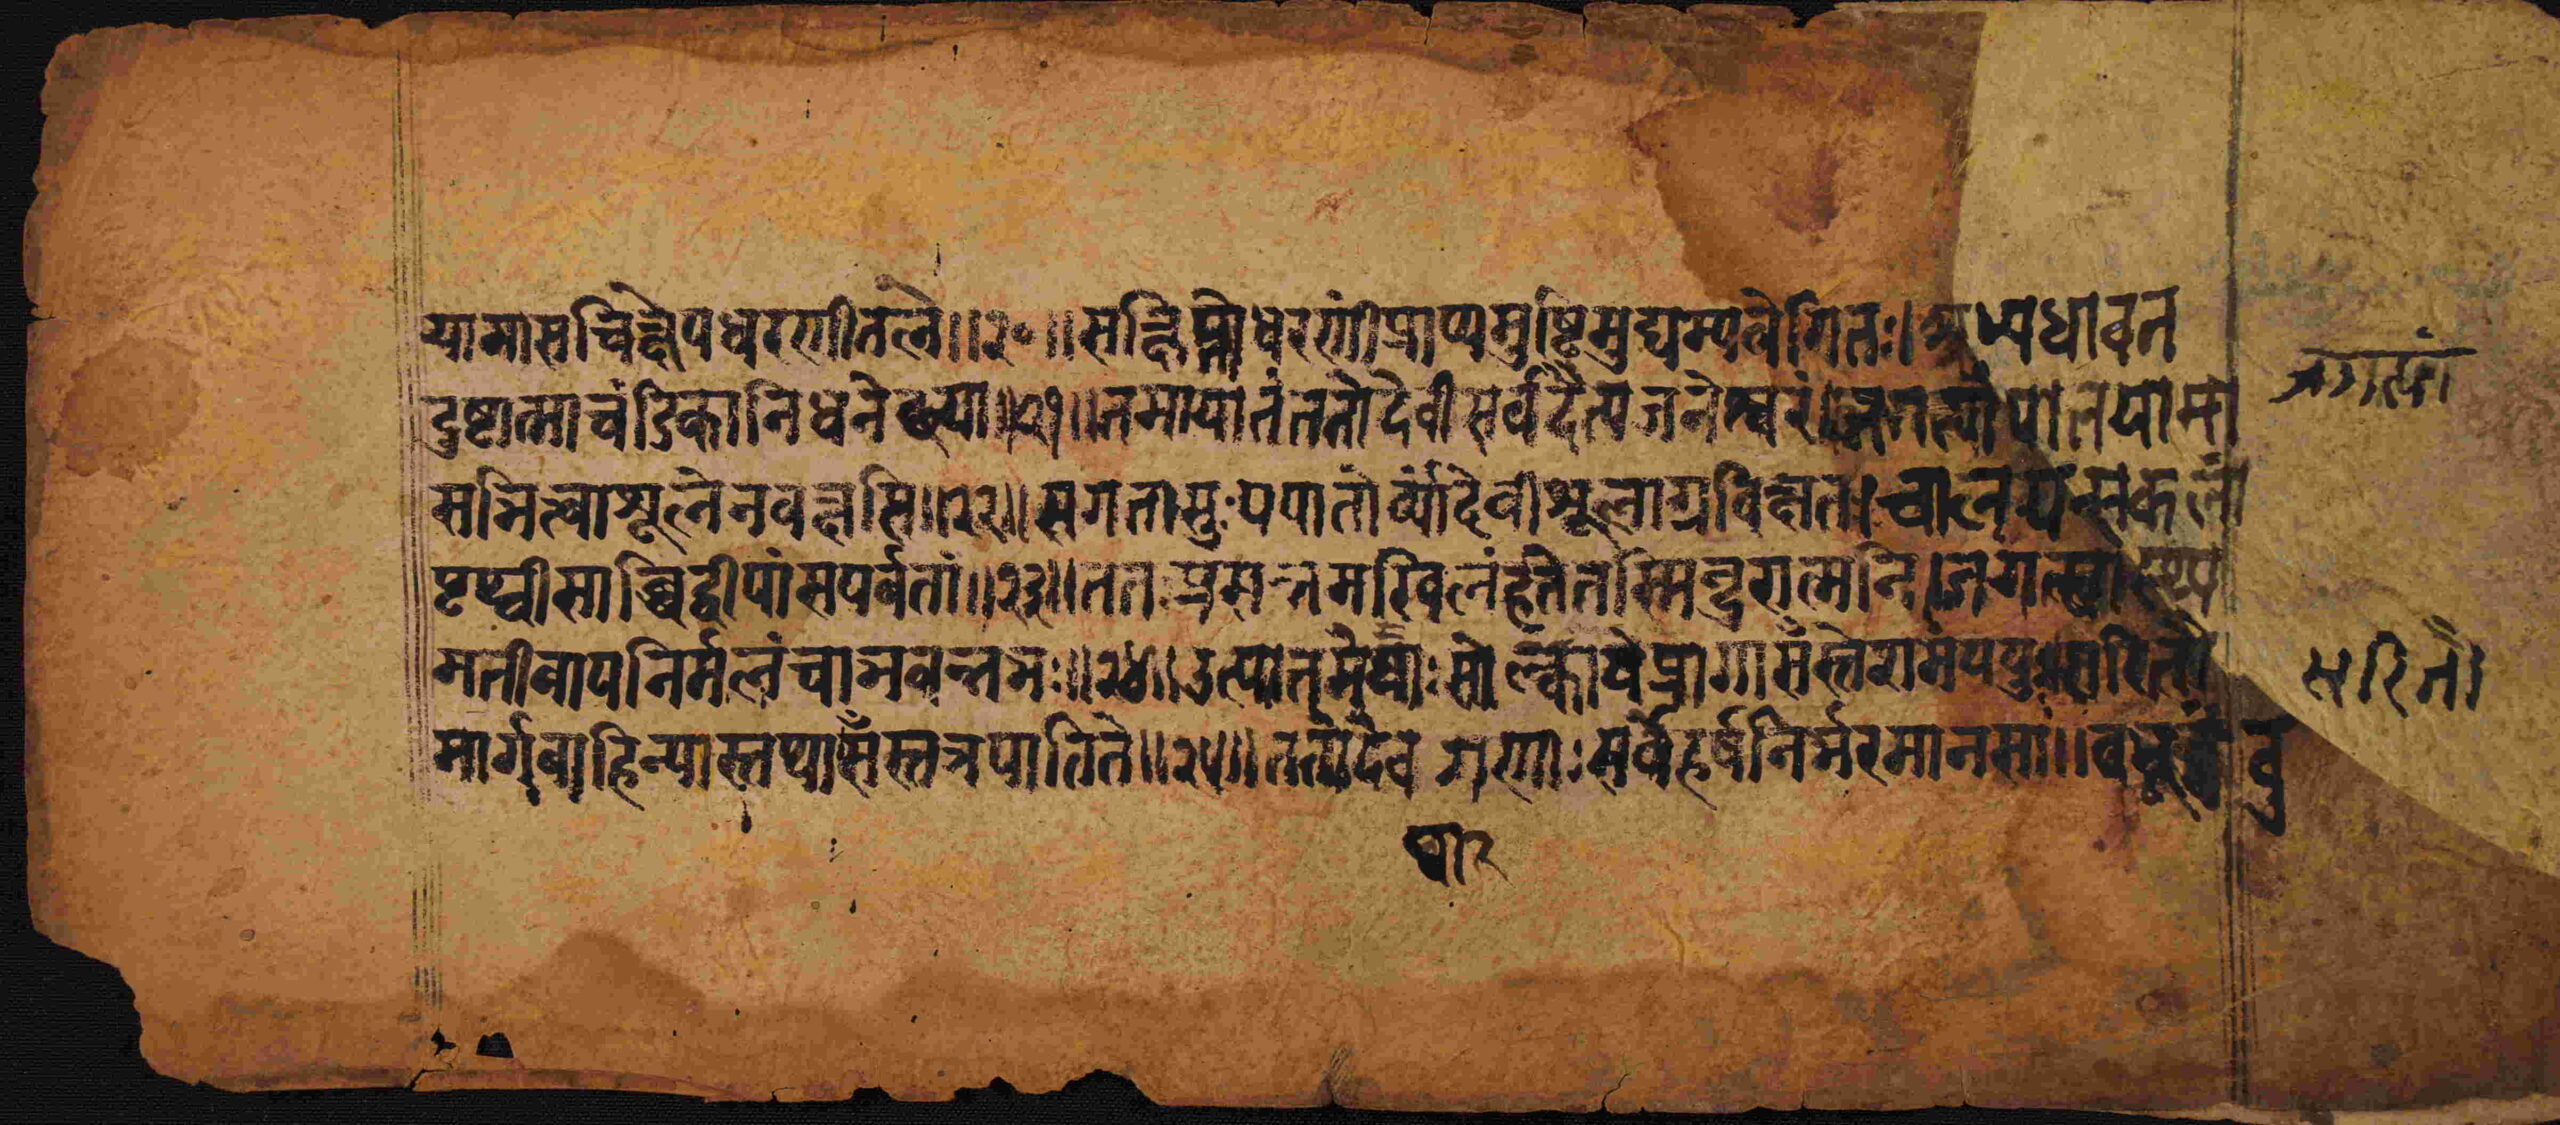 यामास चिक्षेप धरणीतले॥२०॥ सक्षिप्तो धरणीं प्राप्य मुष्टिमुद्यम्य वेगितः। अभ्यधावत
दुष्टात्मा चंडिकानिधनेच्छया॥२१॥ तमायांतं ततो देवी सर्वदैत्यजनेश्वरं। जगत्यां पातयामा
स भित्त्वा शूलेन वक्षसि॥२२॥ स गतासुः पपातोर्व्यां देवीशूलाग्रविक्षत। चालयन्सकलां
पृथ्वीं साब्धिद्वीपां सपर्वतां॥२३॥ ततः प्रसन्नमखिलं हते तस्मिन्दुरात्मनि। जगत्स्वास्थ्य
मतीवाप निर्मलं चाभवन्नभः॥२४॥ उत्पातमेघाः सोल्का ये प्रागासँस्ते शमं ययुः। सरितो
मार्गवाहिन्यास्तथासँस्तत्र पातिते॥२५॥ ततो देवगणाः सर्वे हर्षनिर्भरमानसाः। बभूवु
जगत्यां
सरितो